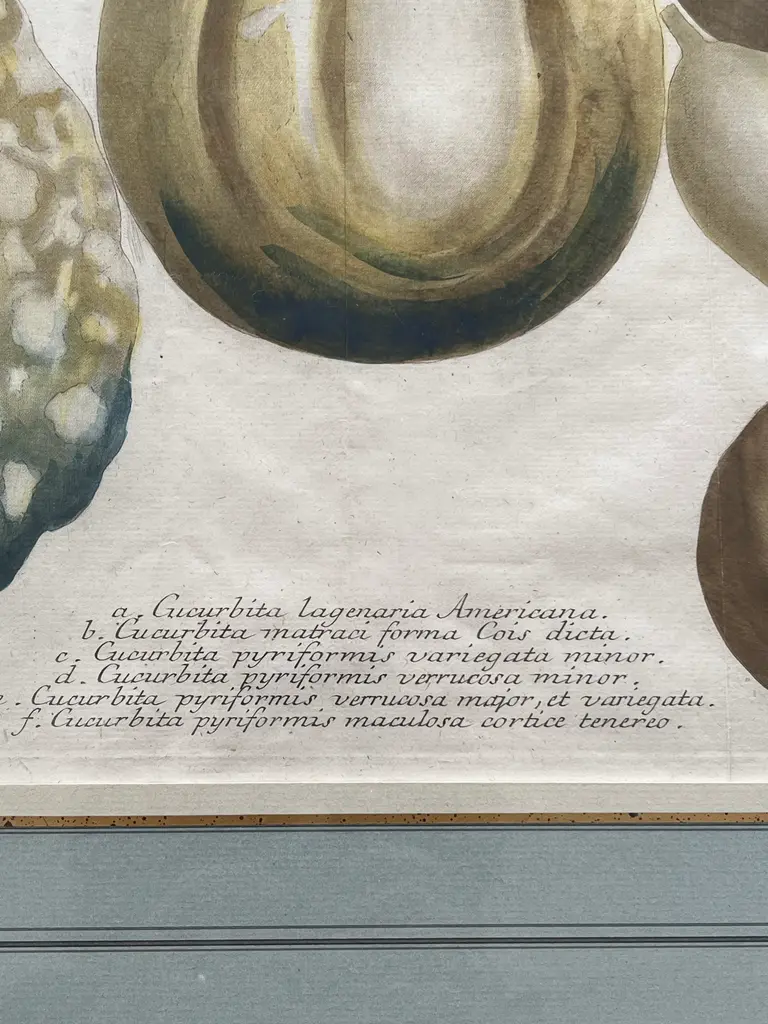 a. Cucurbita lagenaria Americana.
b. Cucurbita matraci forma Cois dicta.
c. Cucurbita pyriformis variegata minor.
d. Cucurbita pyriformis verrucosa minor.
e. Cucurbita pyriformis verrucosa major, et variegata.
f. Cucurbita pyriformis maculosa cortice tenereo.